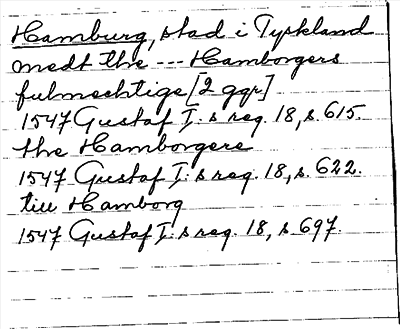 Hamburg, stad i Tyskland
medt the --- Hamborgers
fulmechtige [2 ggr]
1547 Gustaf I:s reg. 18, s. 615.
the Hamborgere
1547 Gustaf I:s reg. 18, s. 622.
till Hamborg
1547 Gustaf I:s reg. 18, s. 697.